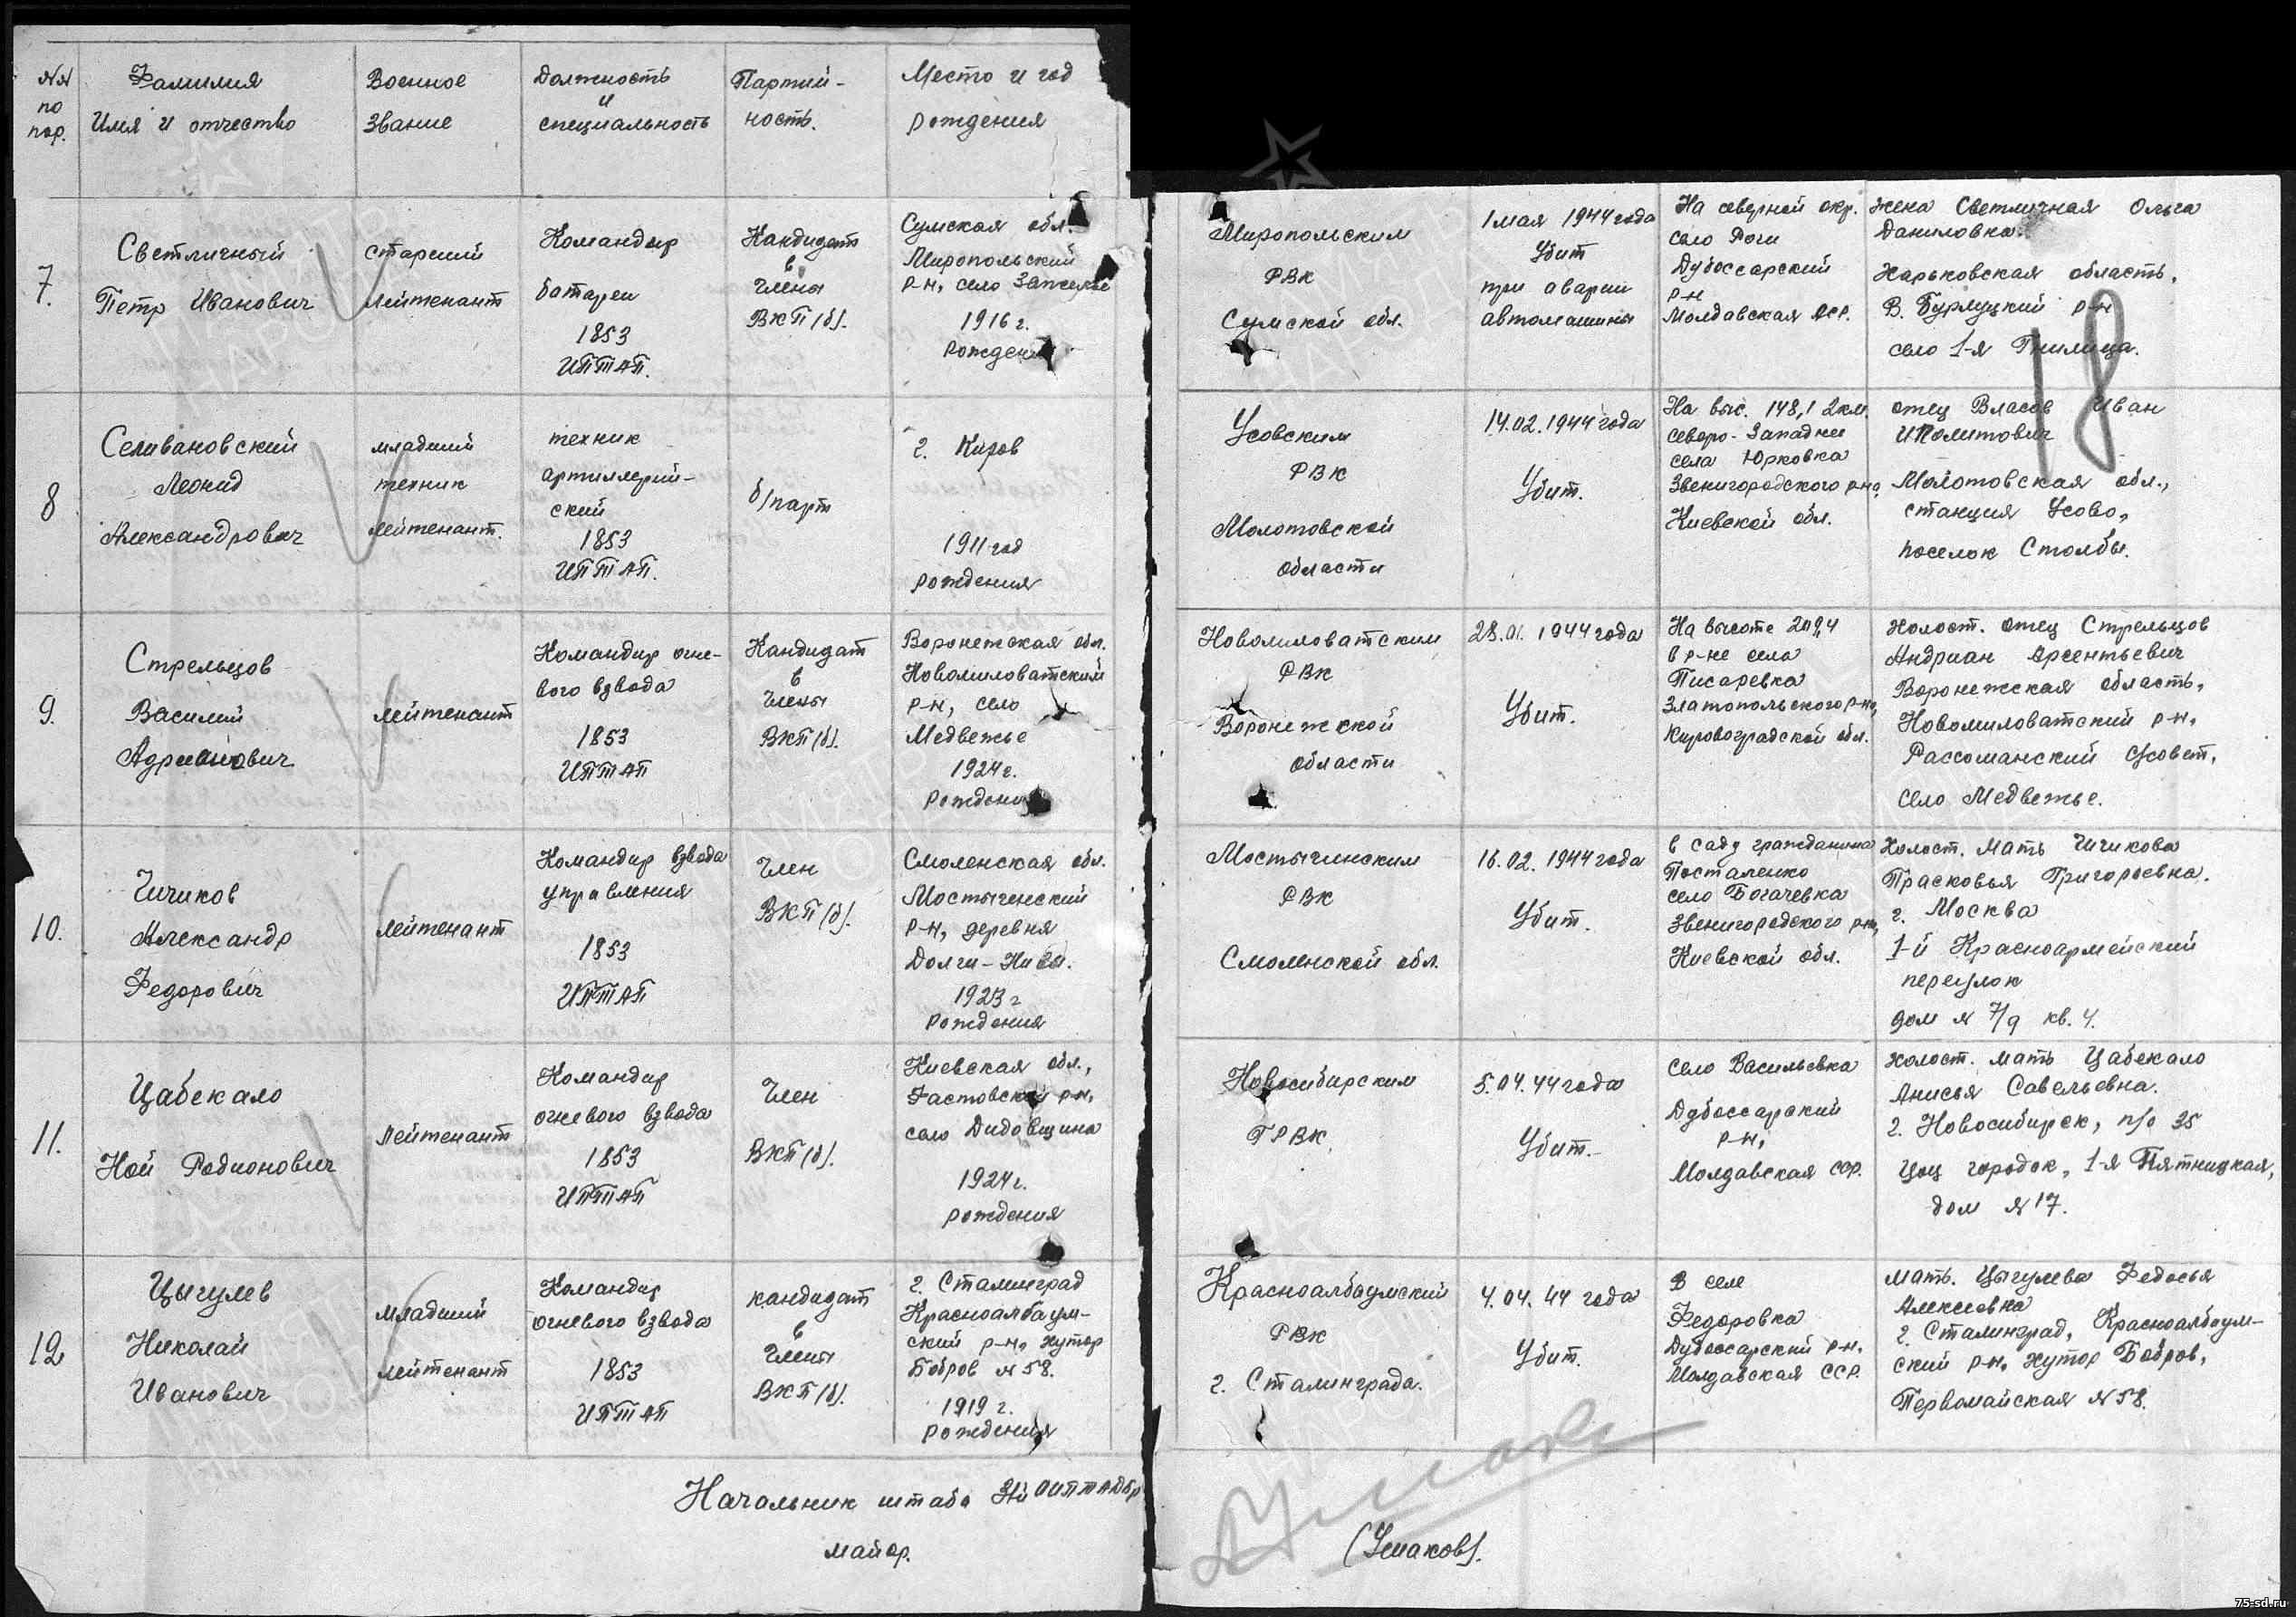 №№ по пор.
Фамилия Имя и отчество
Военное звание
Должность и специальность
Партий-ность.
Место и год рождения
7.
Светличный
Петр Иванович
старший
лейтенант
Командир
батареи
1853
ИПТАП.
Кандидат
в
члены
ВКП(б).
Сумская обл.
Миропольский
р-н, село
1916 г.
рождения
Миропольским
РВК
Сумской обл.
1 мая 1944 года
Убит
при аварии
автомашины
На северной окр.
село Роги
Дубоссарский
р-н
Молдавская ССР.
жена Светличная Ольга
Даниловна.
Харьковская область,
В. Бурлуцкий р-н
село 1-я Гнилица.
18
8
Селивановский
Леонид
Александрович
младший
техник
лейтенант.
техник
артиллерий-
ский
1853
ИПТАП.
б/парт
г. Киров
1911 год
рождения
Усовским
РВК
Молотовской
области
14.02.1944 года
Убит.
На выс. 148,1 2км.
северо-Западнее
села Юрковка
Звенигородского р-на,
Киевской обл.
отец Власов Иван
Иполитович
Молотовская обл.,
станция Усово,
поселок Столбы.
9.
Стрельцов
Василий
Адрианович
лейтенант
Командир огне-
вого взвода
1853
ИПТАП
Кандидат
в
члены
ВКП(б).
Воронежская обл.
Новомиловатским
р-н, село
Медвежье
1924 г.
рождения
Новомиловатским
РВК
Воронежской
области
28.01.1944 года
Убит.
На высоте
в р-не села
Писаревка
Златопольского р-на,
Кировоградской обл.
Холост. отец Стрельцов
Андриан Арсентьевич
Воронежская область,
Новомиловатский р-н,
Рассоманский с/совет,
село Медвежье.
10.
Чичиков
Александр
Федорович
лейтенант
Командир взвода
управления
1853
ИПТАП
Член
ВКП(б).
Смоленская обл.
Мостыченский
р-н, деревня
Долги-Нивы.
1923 г
рождения
Мостычинским
РВК
Смоленской обл.
16.02.1944 года
Убит.
в саду гражданина
Посталенко
село Богачевка
Звенигородского р-на,
Киевской обл.
Холост. Мать Чичикова
Прасковья Григорьевна.
г. Москва
1-й Красноармейский
переулок
дом № 7/9 кв. 4.
11.
Цабекало
Ной Родионович
лейтенант
Командир
огневого взвода
1853
ИПТАП
Член
ВКП(б).
Киевская обл.,
Фастовский р-н,
село Дидовщина
1924 г.
рождения
Новосибирским
ГРВК
5.04.44 года
Убит.
село Васильевка
Дубоссарский
р-н,
Молдавская ССР.
холост. мать Цабекало
Анисья Савельевна.
г. Новосибирск, п/о 35
Соц городок, 1-я Пятницкая,
дом № 17.
12
Цыгулев
Николай
Иванович
младший
лейтенант
Командир
огневого взвода
1853
ИПТАП
кандидат
в
члены
ВКП(б).
г. Сталинград
Красноалбаум-
ский р-н, хутор
Бобров № 58.
1919 г.
рождения
Красноалбаумский
РВК
г. Сталинграда.
4.04.44 года
Убит.
В селе
Федоровка
Дубоссарский р-н,
Молдавская ССР.
мать. Цыгулева Федосья
Алексеевна
г. Сталинград, Красноалбаум-
ский р-н, хутор Бобров,
Первомайская № 58.
Начальник штаба ОИПТАДбр
майор. (Ушаков).
75-sd.ru